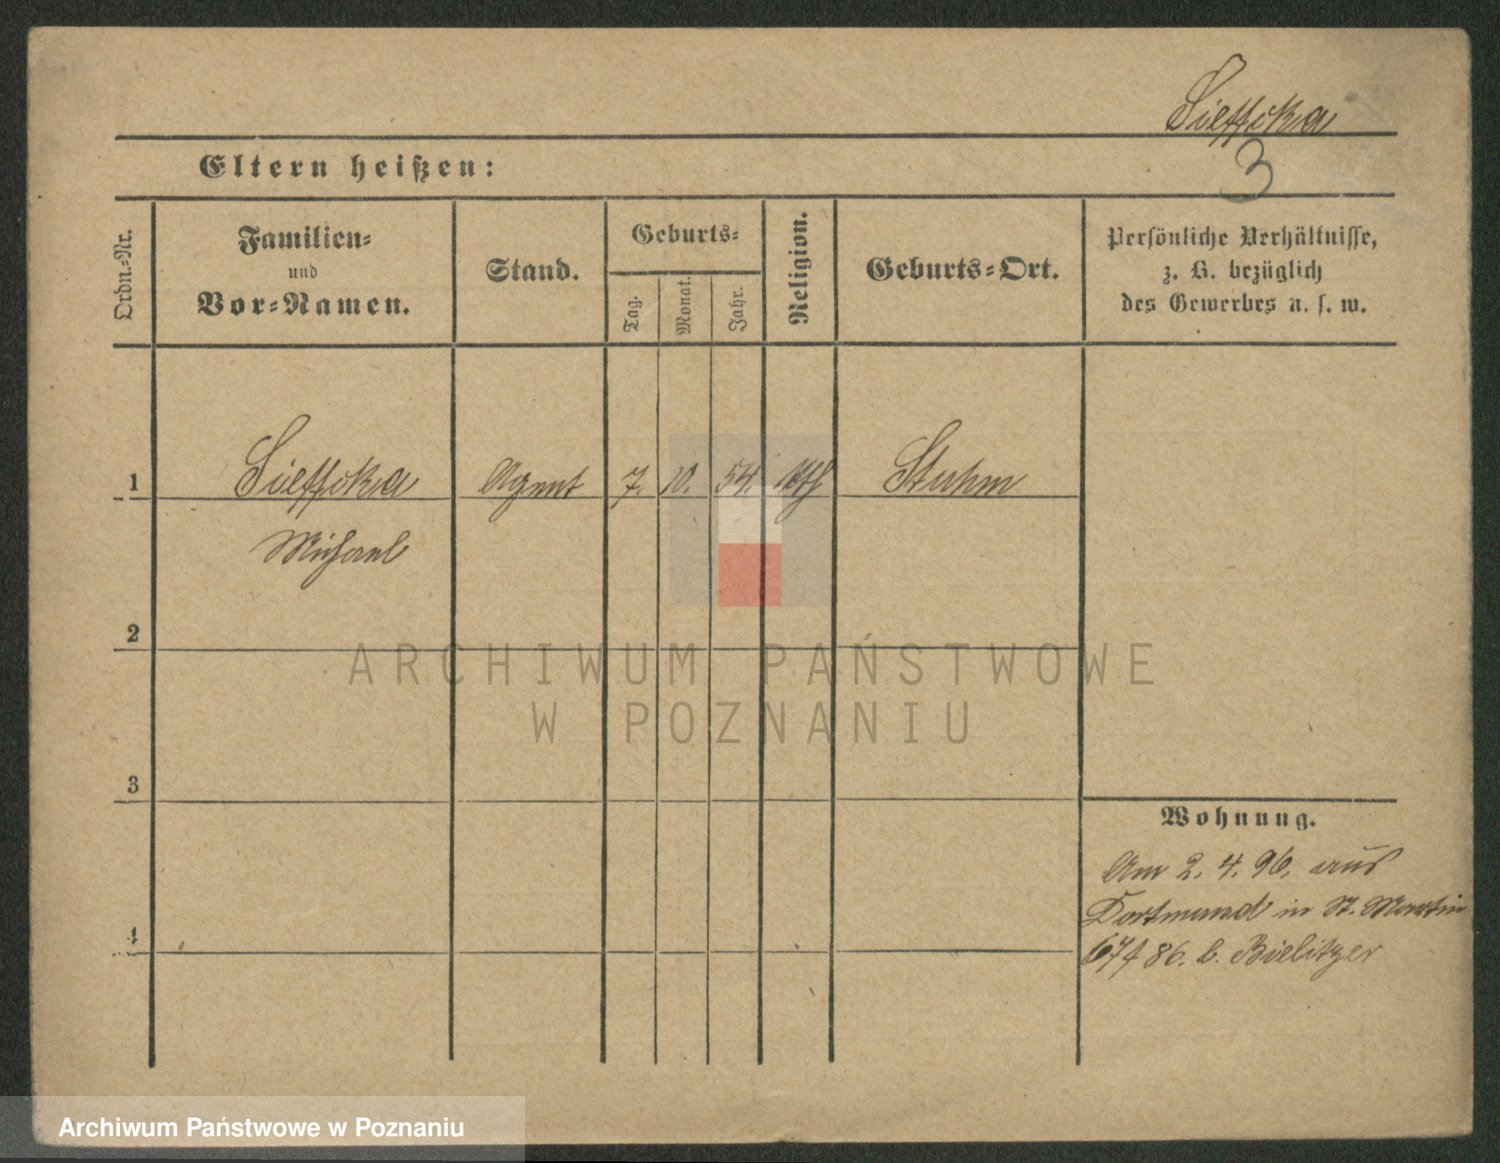 3
Eltern heißen:
Ordn.-Nr.
Familien-
und
Vor-Namen.
Stand.
Geburts-
Tag.
Monat.
Jahr.
Religion.
Geburts-Ort.
Persönliche Verhältnisse,
z. B. bezüglich
des Gewerbes u. s. w.
1 Agent 7. 10. 54. kth Stuhm
Michael
2
3
4
Wohnung.
Am 2. 4. 96. aus
Dortmund in St. Martin
67/86. b. Bielitzer
ARCHIWUM PAŃSTWOWE
W POZNANIU
Archiwum Państwowe w Poznaniu